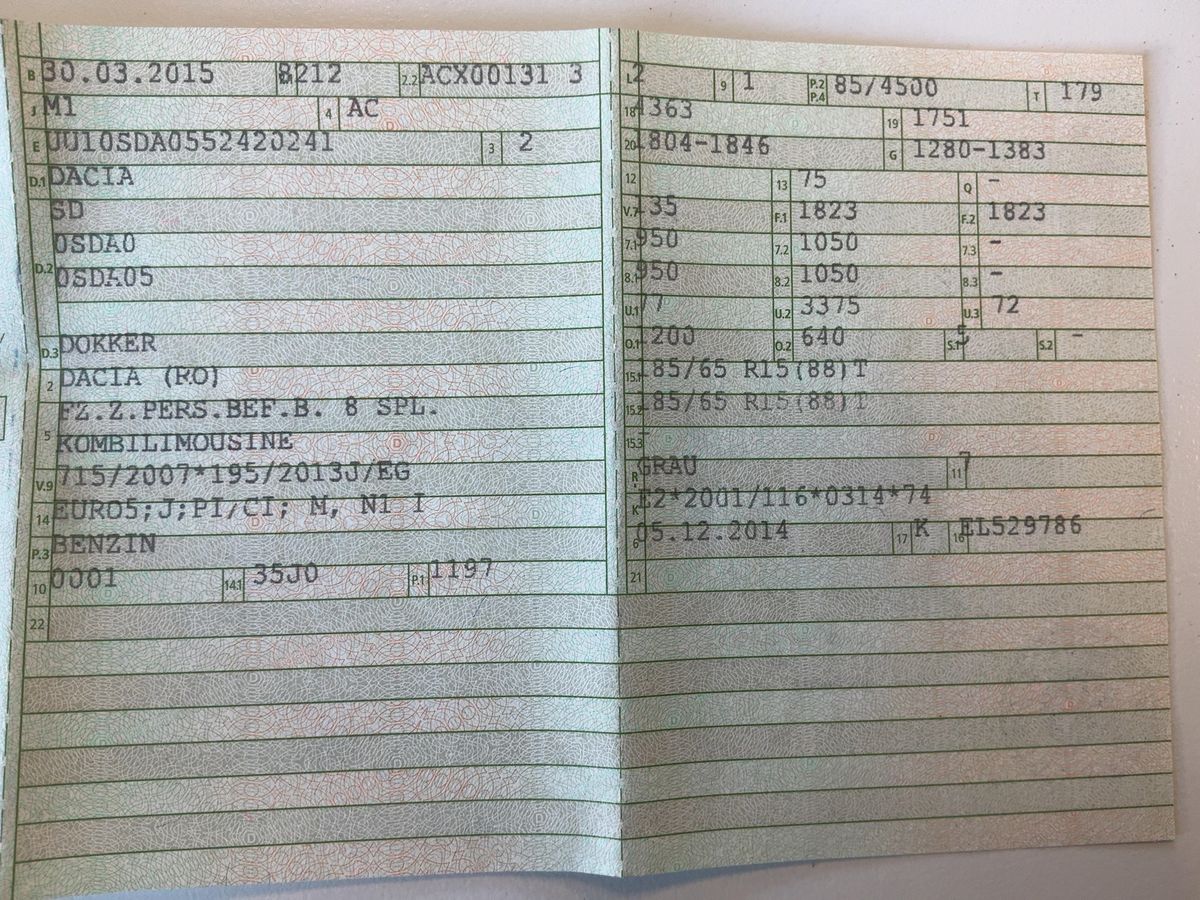 B 30.03.2015 8212 2.2 ACX00131 3
J M1 4 AC
E UU10SDA0552420241 3 2
D.1 DACIA
SD
0SDA0
D.2 0SDA05
D.3 DOKKER
2 DACIA (RO)
FZ.Z.PERS.BEF.B. 8 SPL.
5 KOMBILIMOUSINE
V.9 715/2007*195/2013J/EG
14 EURO5;J;PI/CI; M, N1 I
P.3 BENZIN
10 0001 14.1 35J0 P.1 1197
22
L 2 9 1 P.2 P.4 85/4500 T 179
18 4363 19 1751
20 1804-1846 G 1280-1383
12 13 75 Q -
V.7 135 F.1 1823 F.2 1823
7.1 950 7.2 1050 7.3 -
8.1 950 8.2 1050 8.3 -
U.1 77 U.2 3375 U.3 72
O.1 1200 O.2 640 S.1 5 S.2 -
15.1 185/65 R15(88)T
15.2 185/65 R15(88)T
15.3 -
R GRAU 11 7
K E2*2001/116*0314*74
6 05.12.2014 17 K 16 EL529786
21